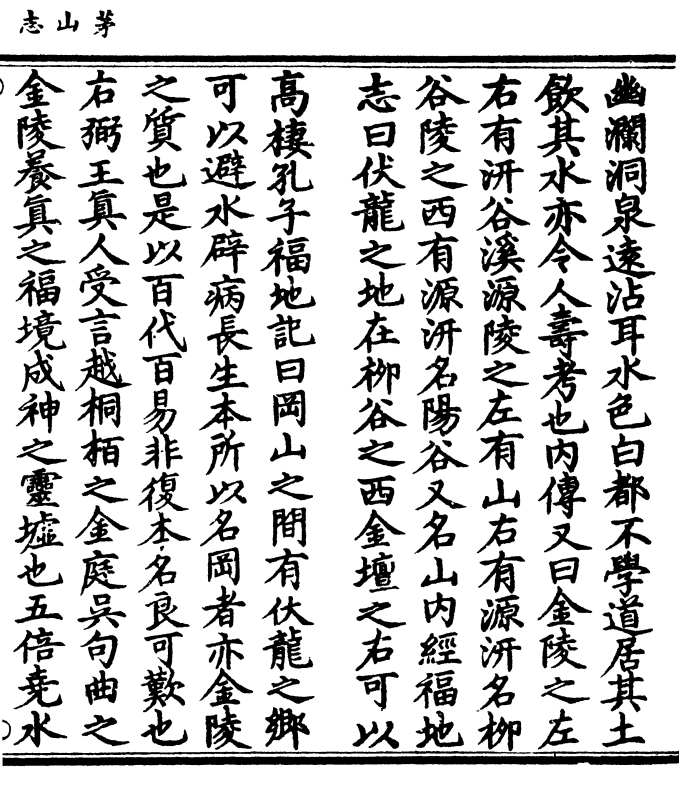 茅山志
幽瀾洞泉遠沾耳水色白都不學道居其土
飲其水亦令人壽考也內傳又曰金陵之左
右有汧谷溪源陵之左有山右有源汧名柳
谷陵之西有源汧名陽谷又名山內經福地
志曰伏龍之地在柳谷之西金壇之右可以
高棲孔子福地記曰岡山之間有伏龍之鄉
可以避水辟病長生本所以名岡者亦金陵
之質也是以百代百易非復本名良可歎也
右弼王真人受言越桐栢之金庭吳句曲之
金陵養真之福境成神之靈墟也五倍堯水